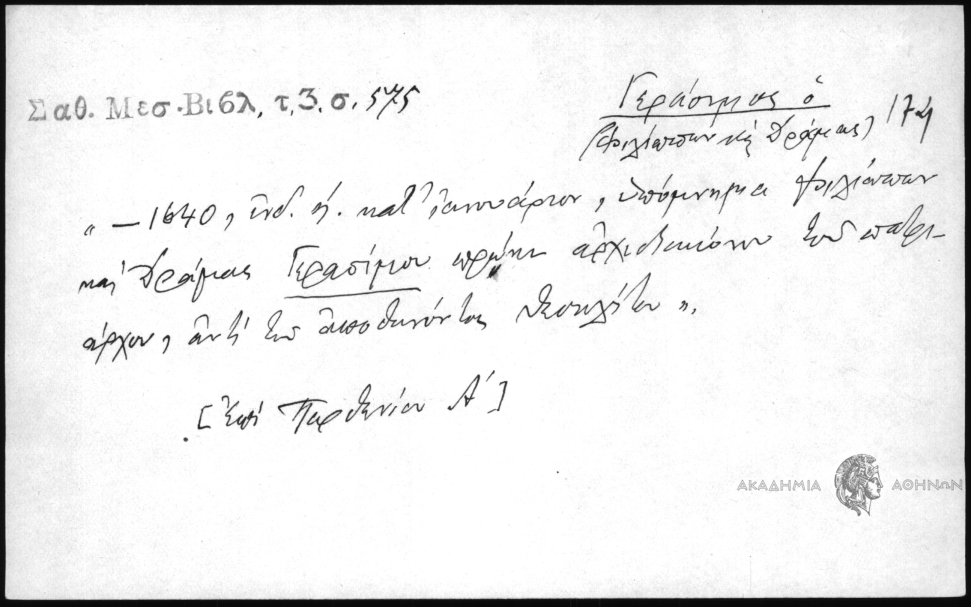 Σαθ. Μεσ. Βιβλ. τ. 3. σ. 575
Γεράσιμος ὁ
(Φιλίππων κ̀ Δράμας) 174
"— 1640, ἰνδ. ή. κατ' ἰανουάριον, ὑπόμνημα Φιλίππων
καὶ Δράμας Γερασίμου πρώην ἀρχιδιακόνου τοῦ πατρι-
άρχου, ἀντὶ τοῦ ἀποθανόντος Θεοκλήτου".
[Ἐπὶ Παρθενίου Α']
ΑΚΑΔΗΜΙΑ ΑΘΗΝΩΝ